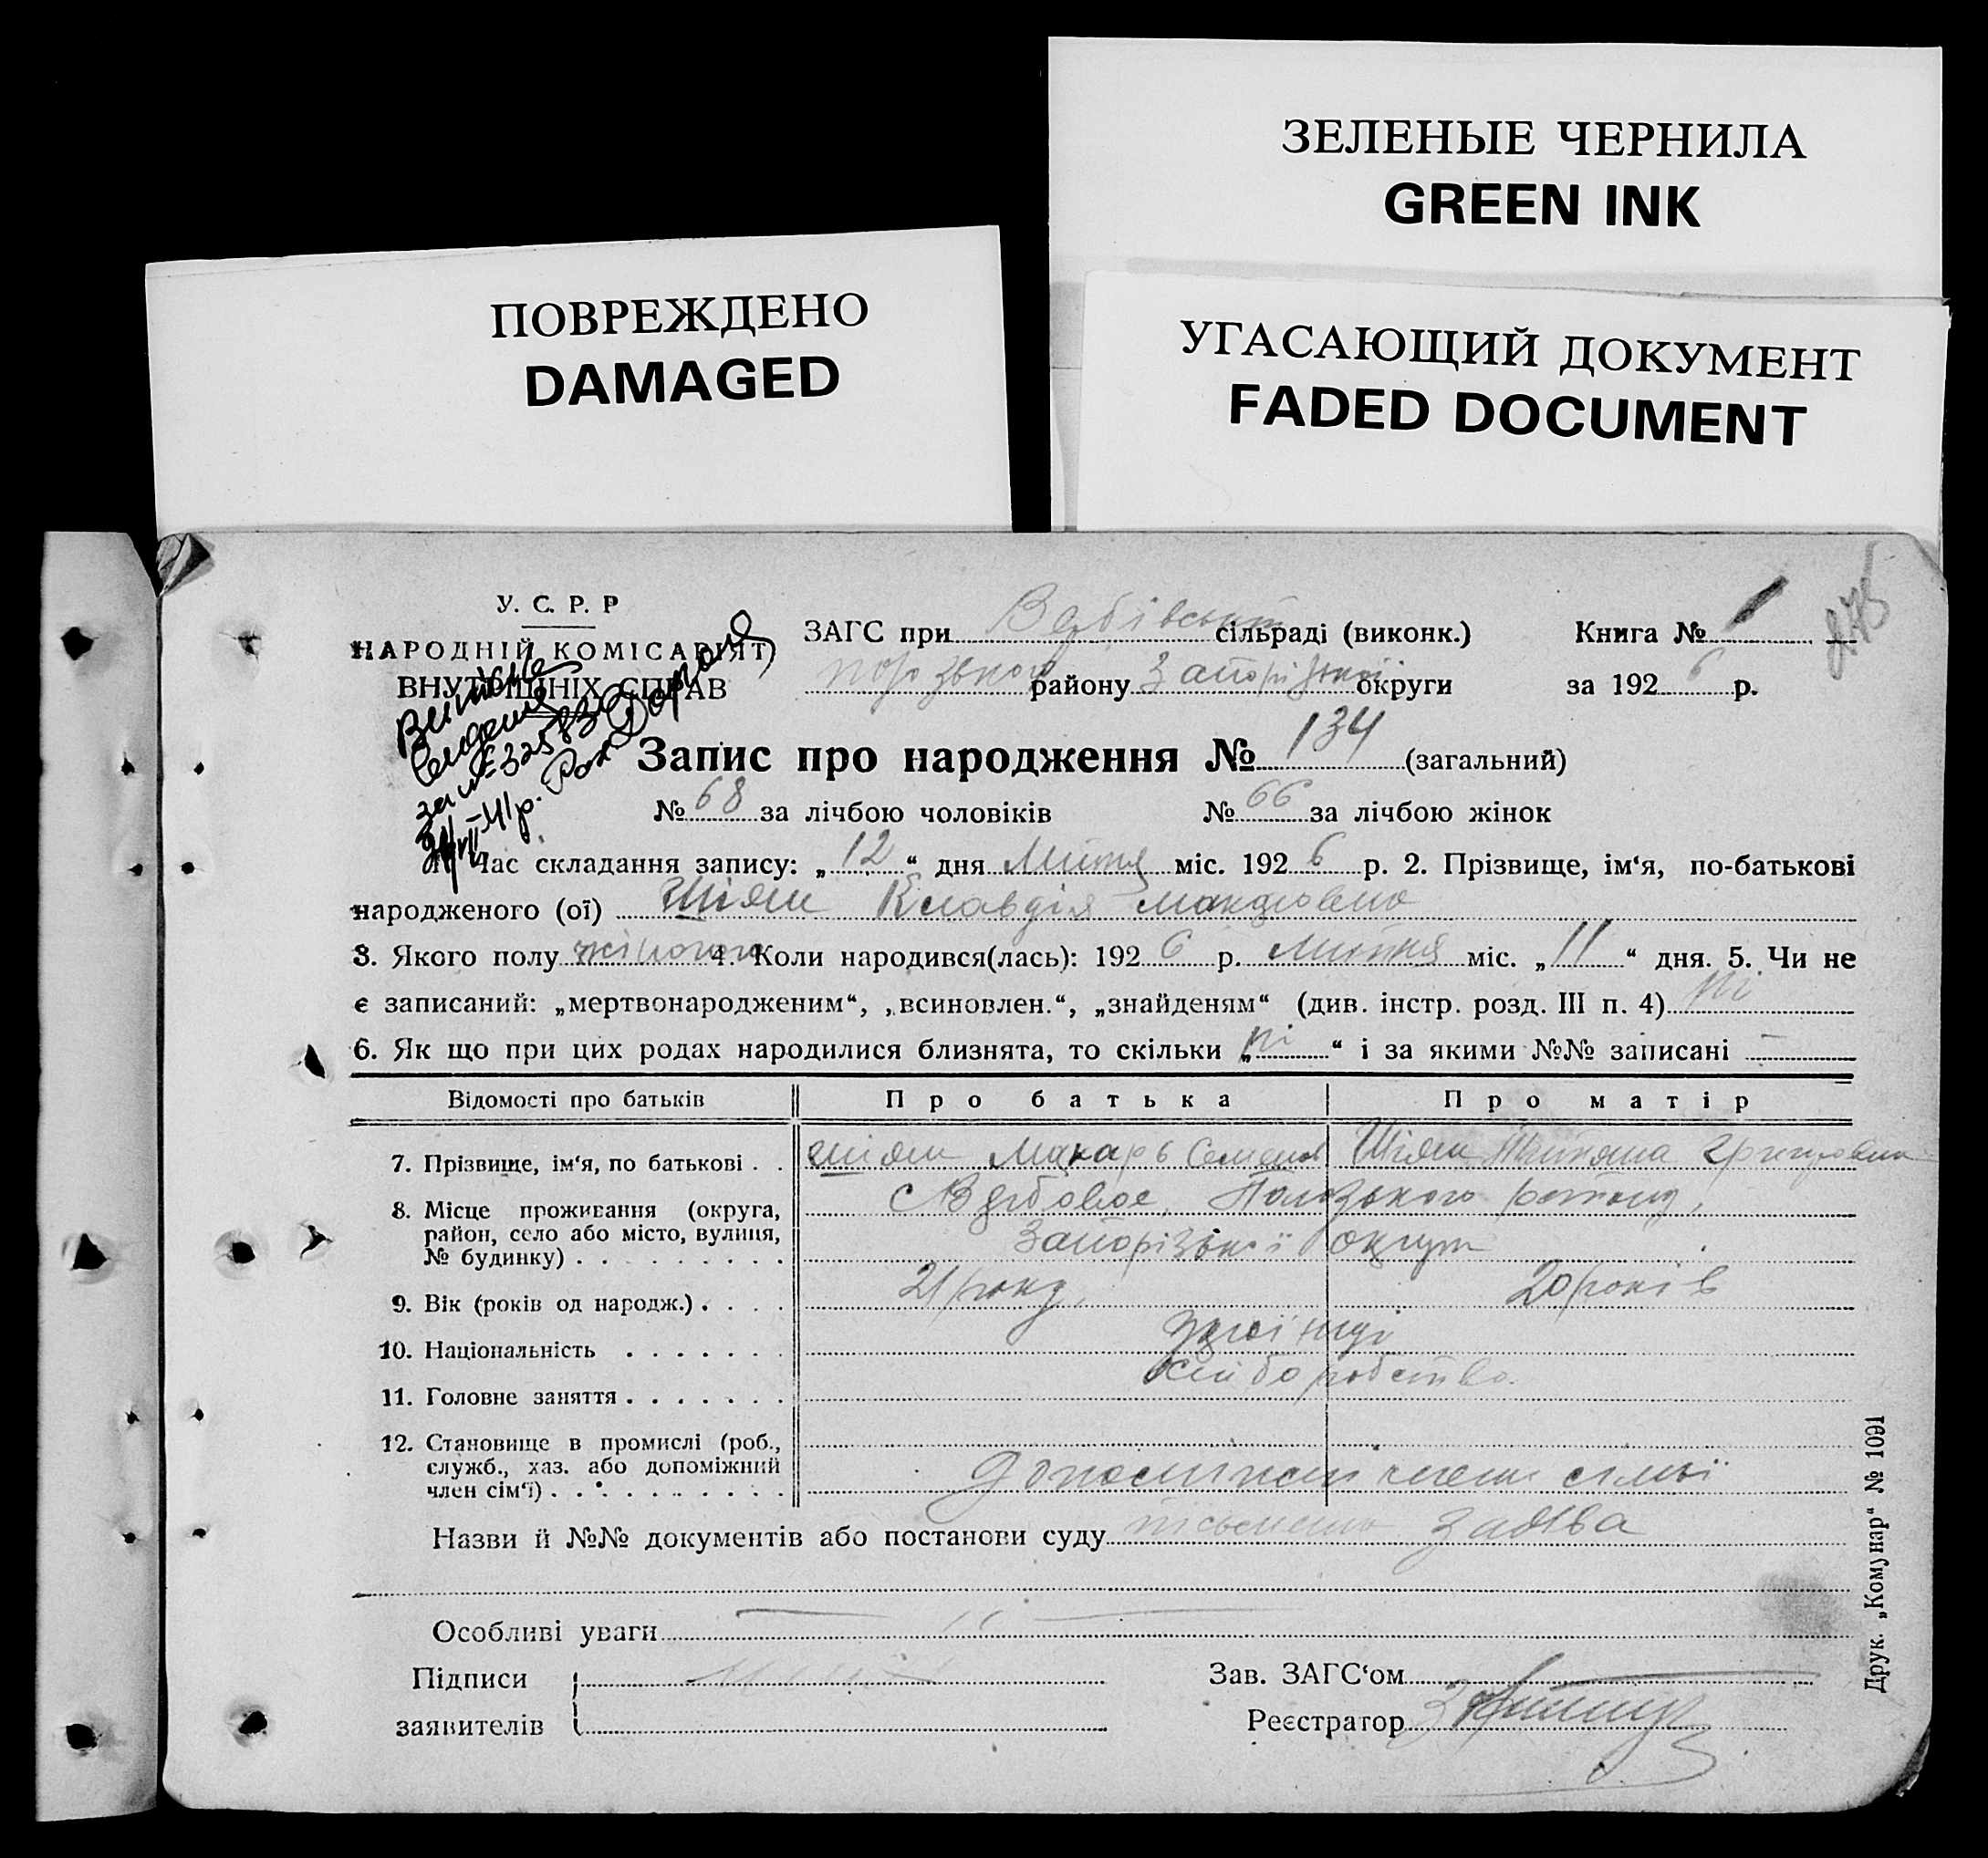 ЗЕЛЕНЫЕ ЧЕРНИЛА
GREEN INK
ПОВРЕЖДЕНО
DAMAGED
УГАСАЮЩИЙ ДОКУМЕНТ
FADED DOCUMENT
У. С. Р. Р
НАРОДНІЙ КОМІСАРІЯТ
ВНУТРІШНІХ СПРАВ
ЗАГС при Вербівській сільраді (виконк.) Книга № 1
району Запорізької округи за 1926 р.
Запис про народження № 134 (загальний)
№ 68 за лічбою чоловіків № 66 за лічбою жінок
Час складання запису: „12“ дня Липня міс. 1926 р. 2. Прізвище, ім‘я, по-батькові
народженого (ої) Шіян Клавдія Макаровна
3. Якого полу жіночого 4. Коли народився(лась): 1926 р. Липня міс. „11“ дня. 5. Чи не
є записаний: „мертвонародженим“, „всиновлен.“, „знайденям“ (див. інстр. розд. III п. 4) ні
6. Як що при цих родах народилися близнята, то скільки „ні“ і за якими №№ записані —
Відомості про батьків Про батька Про матір
7. Прізвище, ім‘я, по батькові . . Шіян Макарь Семенов Шіян Тетяна Григоровна
8. Місце проживання (округа,
район, село або місто, вулиця,
№ будинку) . . . . . . . . . с Вербовое, Пологського району, Запорізької округи
9. Вік (років од народж.) . . . . 21 року, 20 років
10. Національність . . . . . . . українці
11. Головне заняття . . . . . . . хліборобство.
12. Становище в промислі (роб.,
служб., хаз. або допоміжний
член сім‘ї) . . . . . . . . . . член сімьї
Назви й №№ документів або постанови суду заява
Особливі уваги
Підписи
заявителів
Зав. ЗАГС‘ом
Реєстратор
Друк. „Комунар“ № 1091